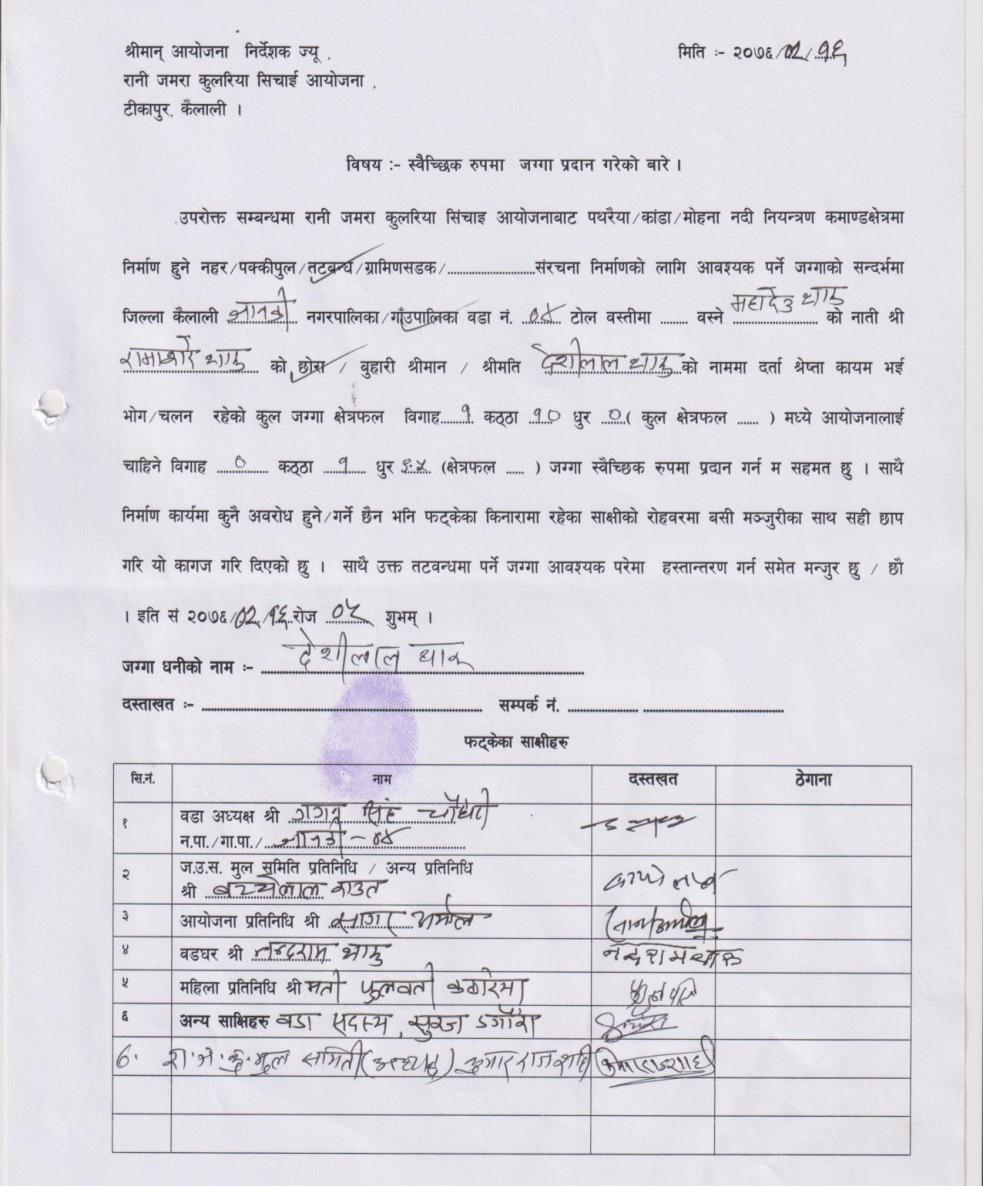 श्रीमान् आयोजना निर्देशक ज्यू ,
मिति :- २०७६/०२/१६
रानी जमरा कुलरिया सिचाई आयोजना ,
टीकापुर, कैलाली ।
विषय :- स्वैच्छिक रुपमा जग्गा प्रदान गरेको बारे ।
उपरोक्त सम्बन्धमा रानी जमरा कुलरिया सिंचाइ आयोजनाबाट पथरैया/कांडा/मोहना नदी नियन्त्रण कमाण्डक्षेत्रमा
निर्माण हुने नहर/पक्कीपुल/तटबन्ध/ग्रामिणसडक/..........................संरचना निर्माणको लागि आवश्यक पर्ने जग्गाको सन्दर्भमा
जिल्ला कैलाली जानकी नगरपालिका/गाँउपालिका वडा नं. ०४ टोल वस्तीमा ........ वस्ने महादेउ थारु को नाती श्री
थारु को छोरा / बुहारी श्रीमान / श्रीमति देशीलाल थारु को नाममा दर्ता श्रेष्ता कायम भई
भोग/चलन रहेको कुल जग्गा क्षेत्रफल विगाह १ कठ्ठा १० धुर ० ( कुल क्षेत्रफल ...... ) मध्ये आयोजनालाई
चाहिने विगाह ० कठ्ठा १ धुर ६.५ (क्षेत्रफल ..... ) जग्गा स्वैच्छिक रुपमा प्रदान गर्न म सहमत छु । साथै
निर्माण कार्यमा कुनै अवरोध हुने/गर्ने छैन भनि फट्केका किनारामा रहेका साक्षीको रोहवरमा बसी मञ्जुरीका साथ सही छाप
गरि यो कागज गरि दिएको छु । साथै उक्त तटवन्धमा पर्ने जग्गा आवश्यक परेमा हस्तान्तरण गर्न समेत मन्जुर छु / छौ
। इति सं २०७६/०२/१६ रोज ०५ शुभम् ।
जग्गा धनीको नाम :- देशीलाल थारु
दस्ताखत :- .......... सम्पर्क नं. ..........
फट्केका साक्षीहरु
सि.नं. नाम दस्तखत ठेगाना
१ वडा अध्यक्ष श्री गगन सिंह चौधरी
न.पा./गा.पा./ जानकी - ०४
२ ज.उ.स. मुल समिति प्रतिनिधि / अन्य प्रतिनिधि
श्री बच्चेलाल राउत
३ आयोजना प्रतिनिधि श्री सागर
४ वडघर श्री नन्दराम थारु नन्दराम थारु
५ महिला प्रतिनिधि श्री मती फुलवती कठरिया
६ अन्य साक्षिहरु वडा सदस्य, सुरज डगौरा
७. रा.ज.कु. मुल समिती (अध्यक्ष) कुमार राज शाही